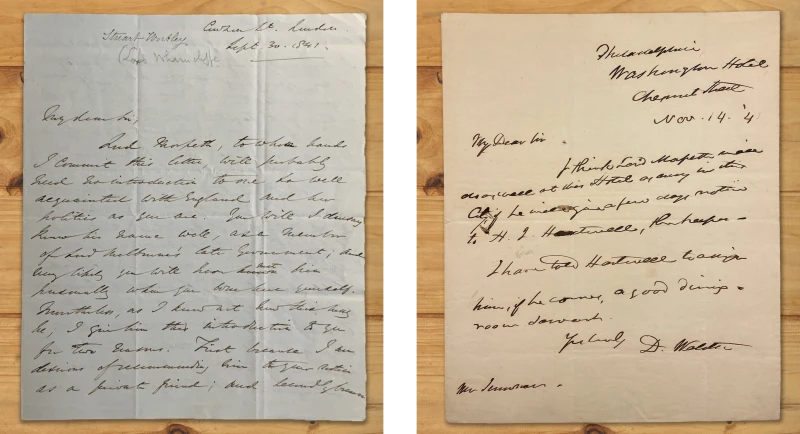 Stuart Wortley
(Lord Wharncliffe
Curzon St. London
Sept. 30. 1841.
My dear Sir,
Lord Morpeth, to whose hands
I commit this letter, will probably
need no introduction to one so well
acquainted with England and her
politics as you are. You will I
know his name well, as a member
of Lord Melbourne's late Government; and
very likely you will have him
personally when you were here yourself.
Nevertheless, as I know not how this may
be, I give him this introduction to you
for two reasons. First because I am
desirous of recommending him to your notice
as a private friend; and secondly because
Philadelphia
Washington Hotel
Chesnut Street
Nov. 14. '41
My Dear Sir
I think Lord Morpeth will
do as well at this Hotel as any in this
City, he will give a few days notice
to H. J. Hartwell, the keeper.
I have told Hartwell to assign
him, if he comes, a good dining-
room servant.
Yrs truly D. Webster
Mr